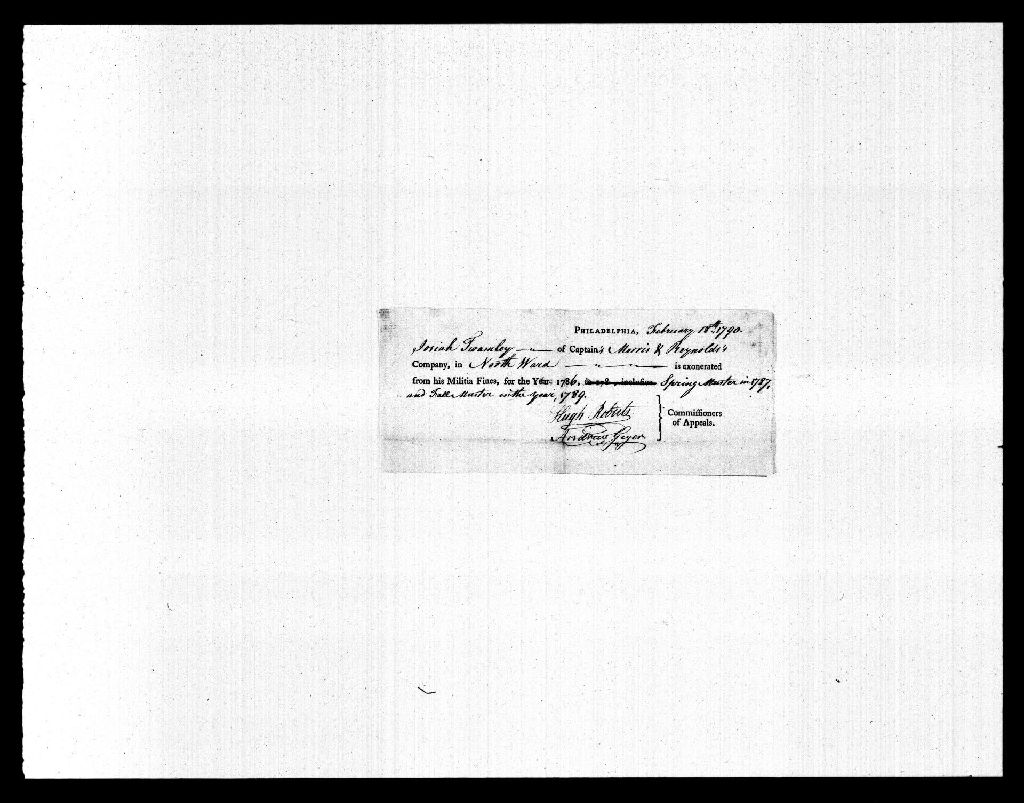 PHILADELPHIA, February 18th 1790.
Josiah Twamley of Captain's Morris & Reynolds's
Company, in North Ward is exonerated
from his Militia Fines, for the Year 1786, to 178 , inclusive. Spring Muster in 1787,
and Fall Muster in the Year, 1789.
Hugh Roberts
Andreas Geyer
Commissioners
of Appeals.